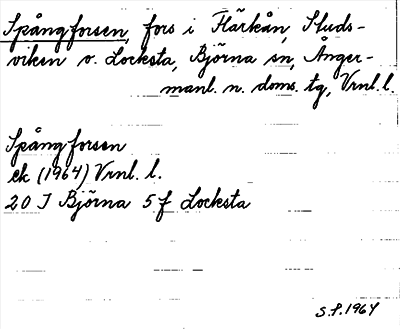 Spångforsen, fors i Flärkån, Studs-
viken o. Locksta, Björna sn, Ånger-
manl. n. doms. tg, Vrnl. l.
Spångforsen
ek (1964) Vrnl. l.
20 J Björna 5 f Locksta
S.F. 1964